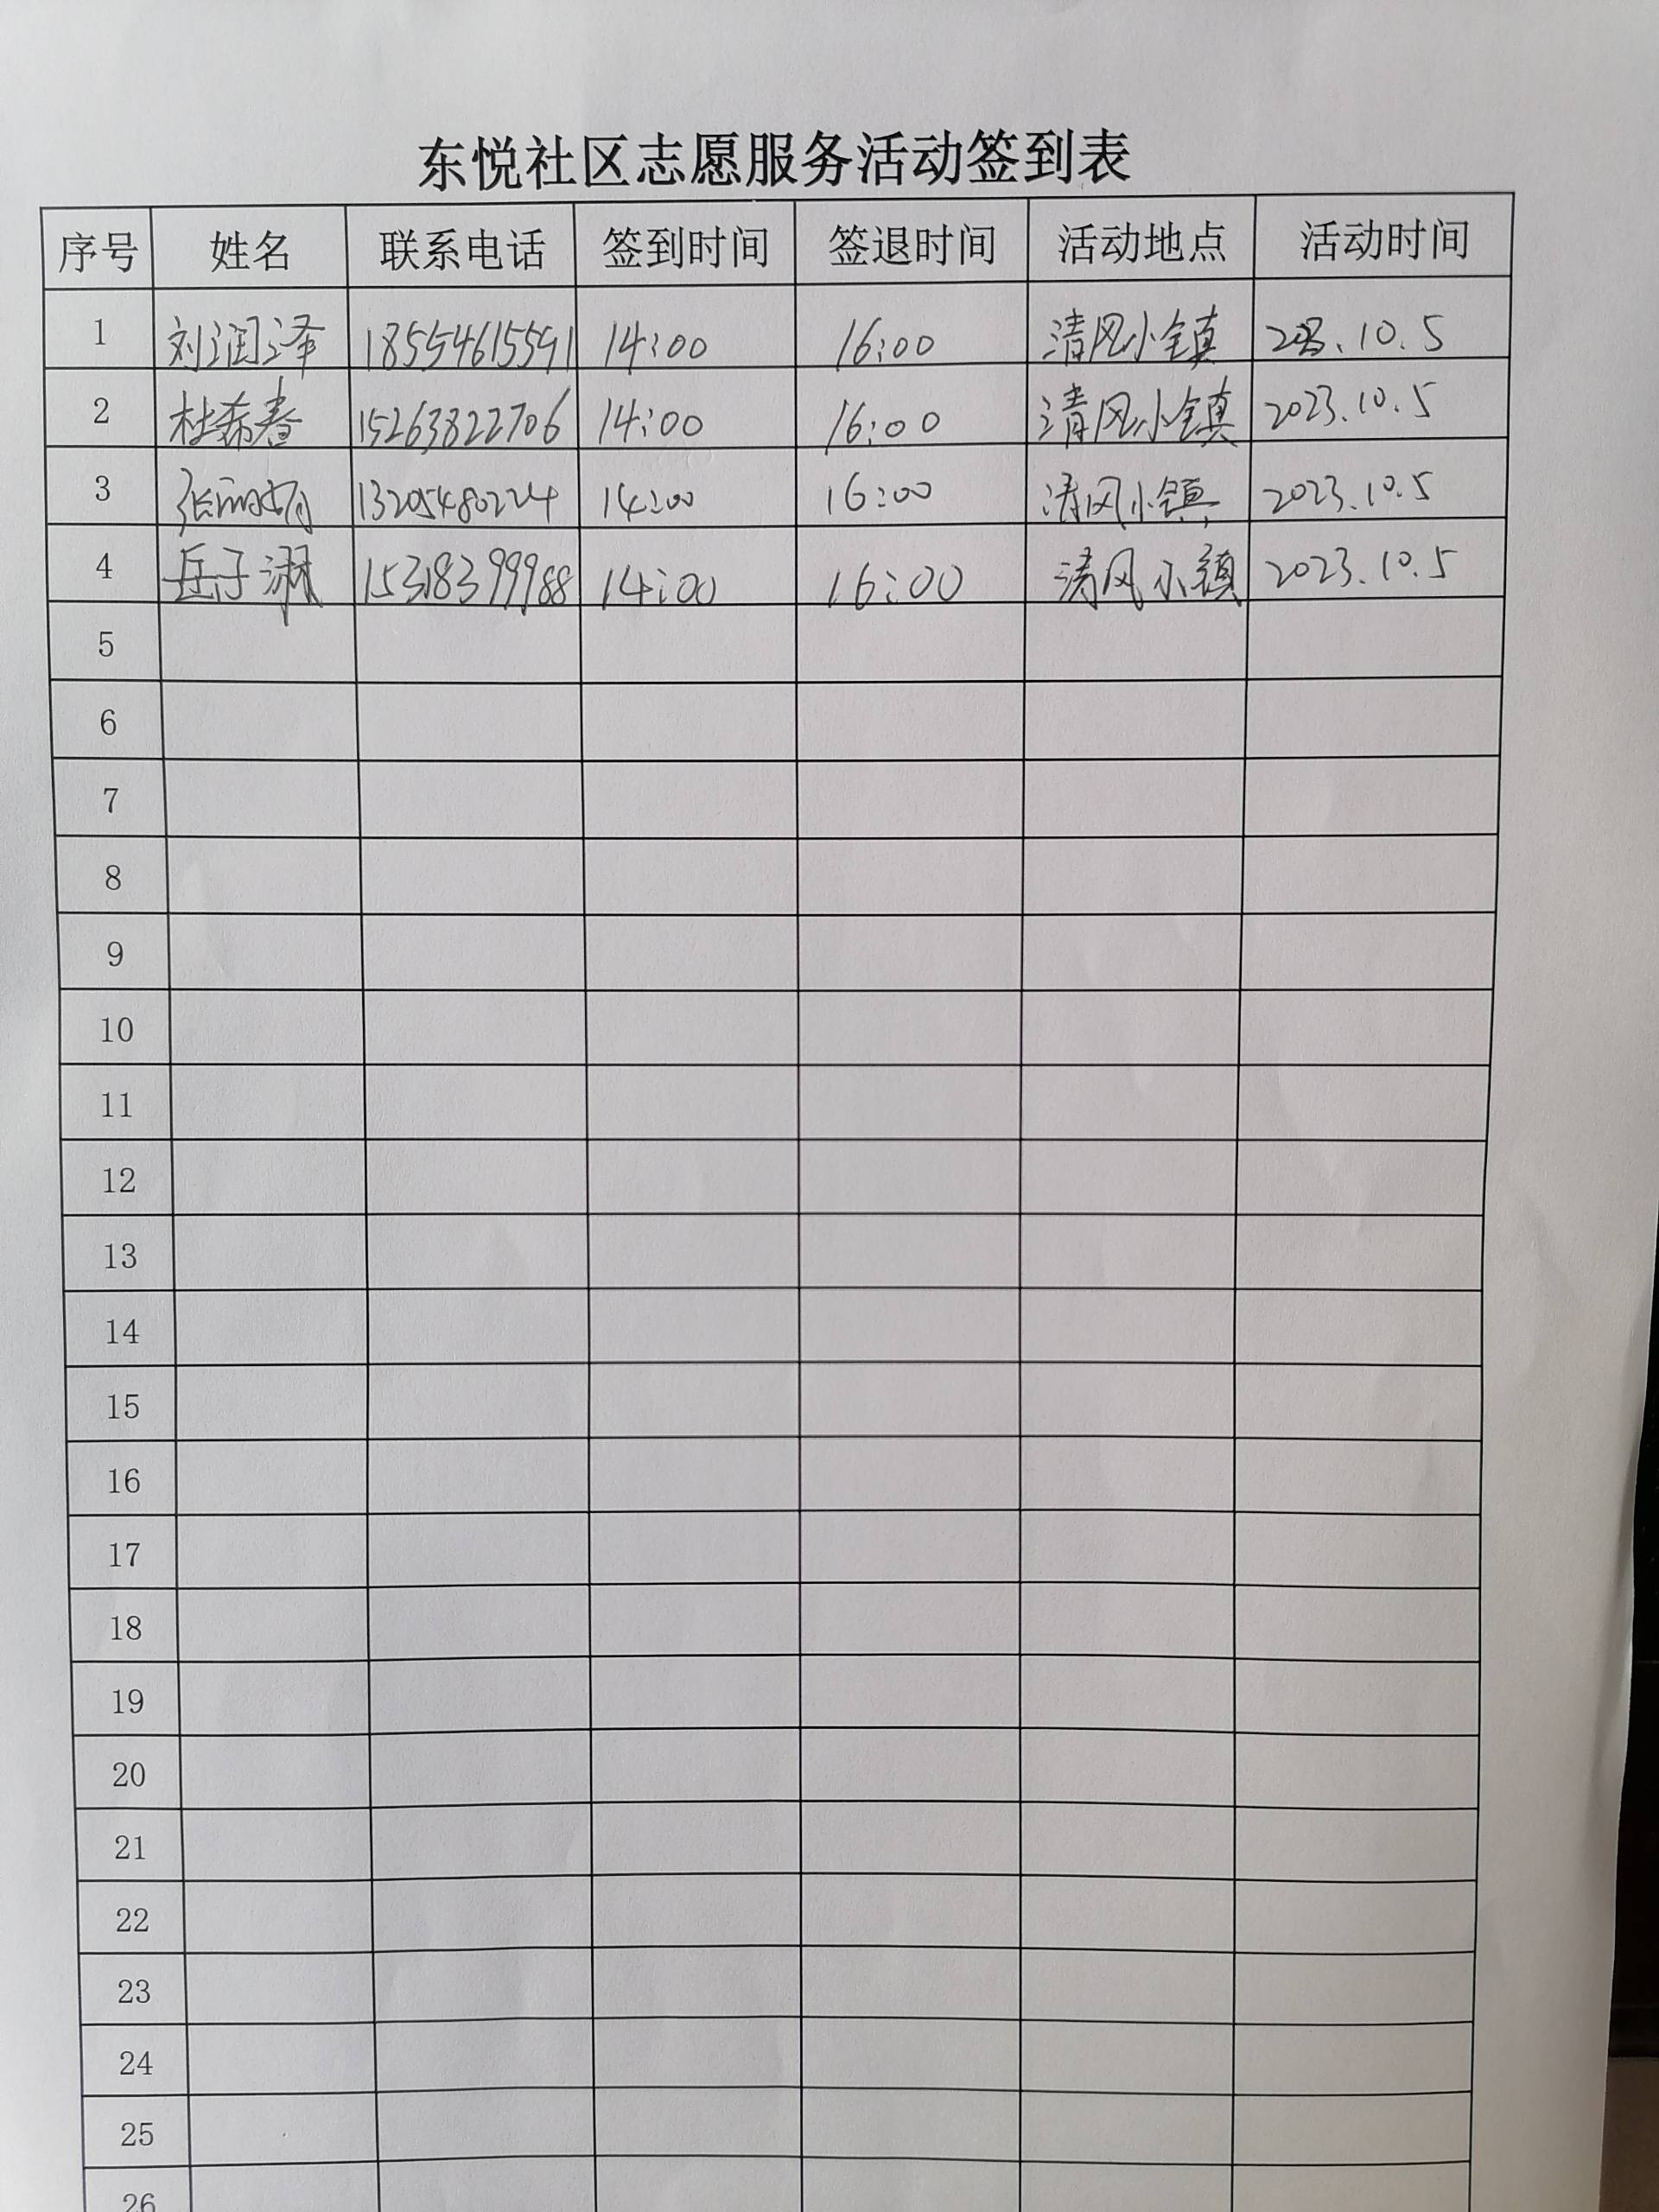 东悦社区志愿服务活动签到表
序号 姓名 联系电话 签到时间 签退时间 活动地点 活动时间
1 刘润泽 18554615591 14:00 16:00 清风小镇 2023.10.5
2 杜希春 15263822706 14:00 16:00 清风小镇 2023.10.5
3 张丽娟 13205480224 14:00 16:00 清风小镇 2023.10.5
4 岳子淋 15318399988 14:00 16:00 清风小镇 2023.10.5
5
6
7
8
9
10
11
12
13
14
15
16
17
18
19
20
21
22
23
24
25
26